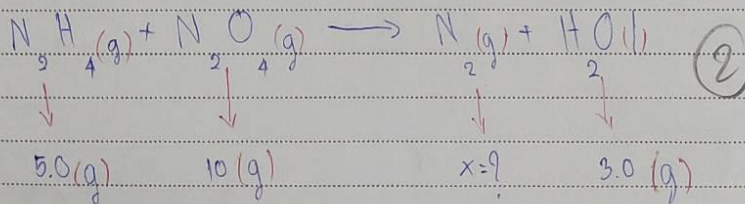 N₂H₄(g) + N₂O₄(g) ⟶ N₂(g) + H₂O(l)
②
↓ ↓ ↓ ↓
5.0(g) 10(g) x=? 3.0(g)